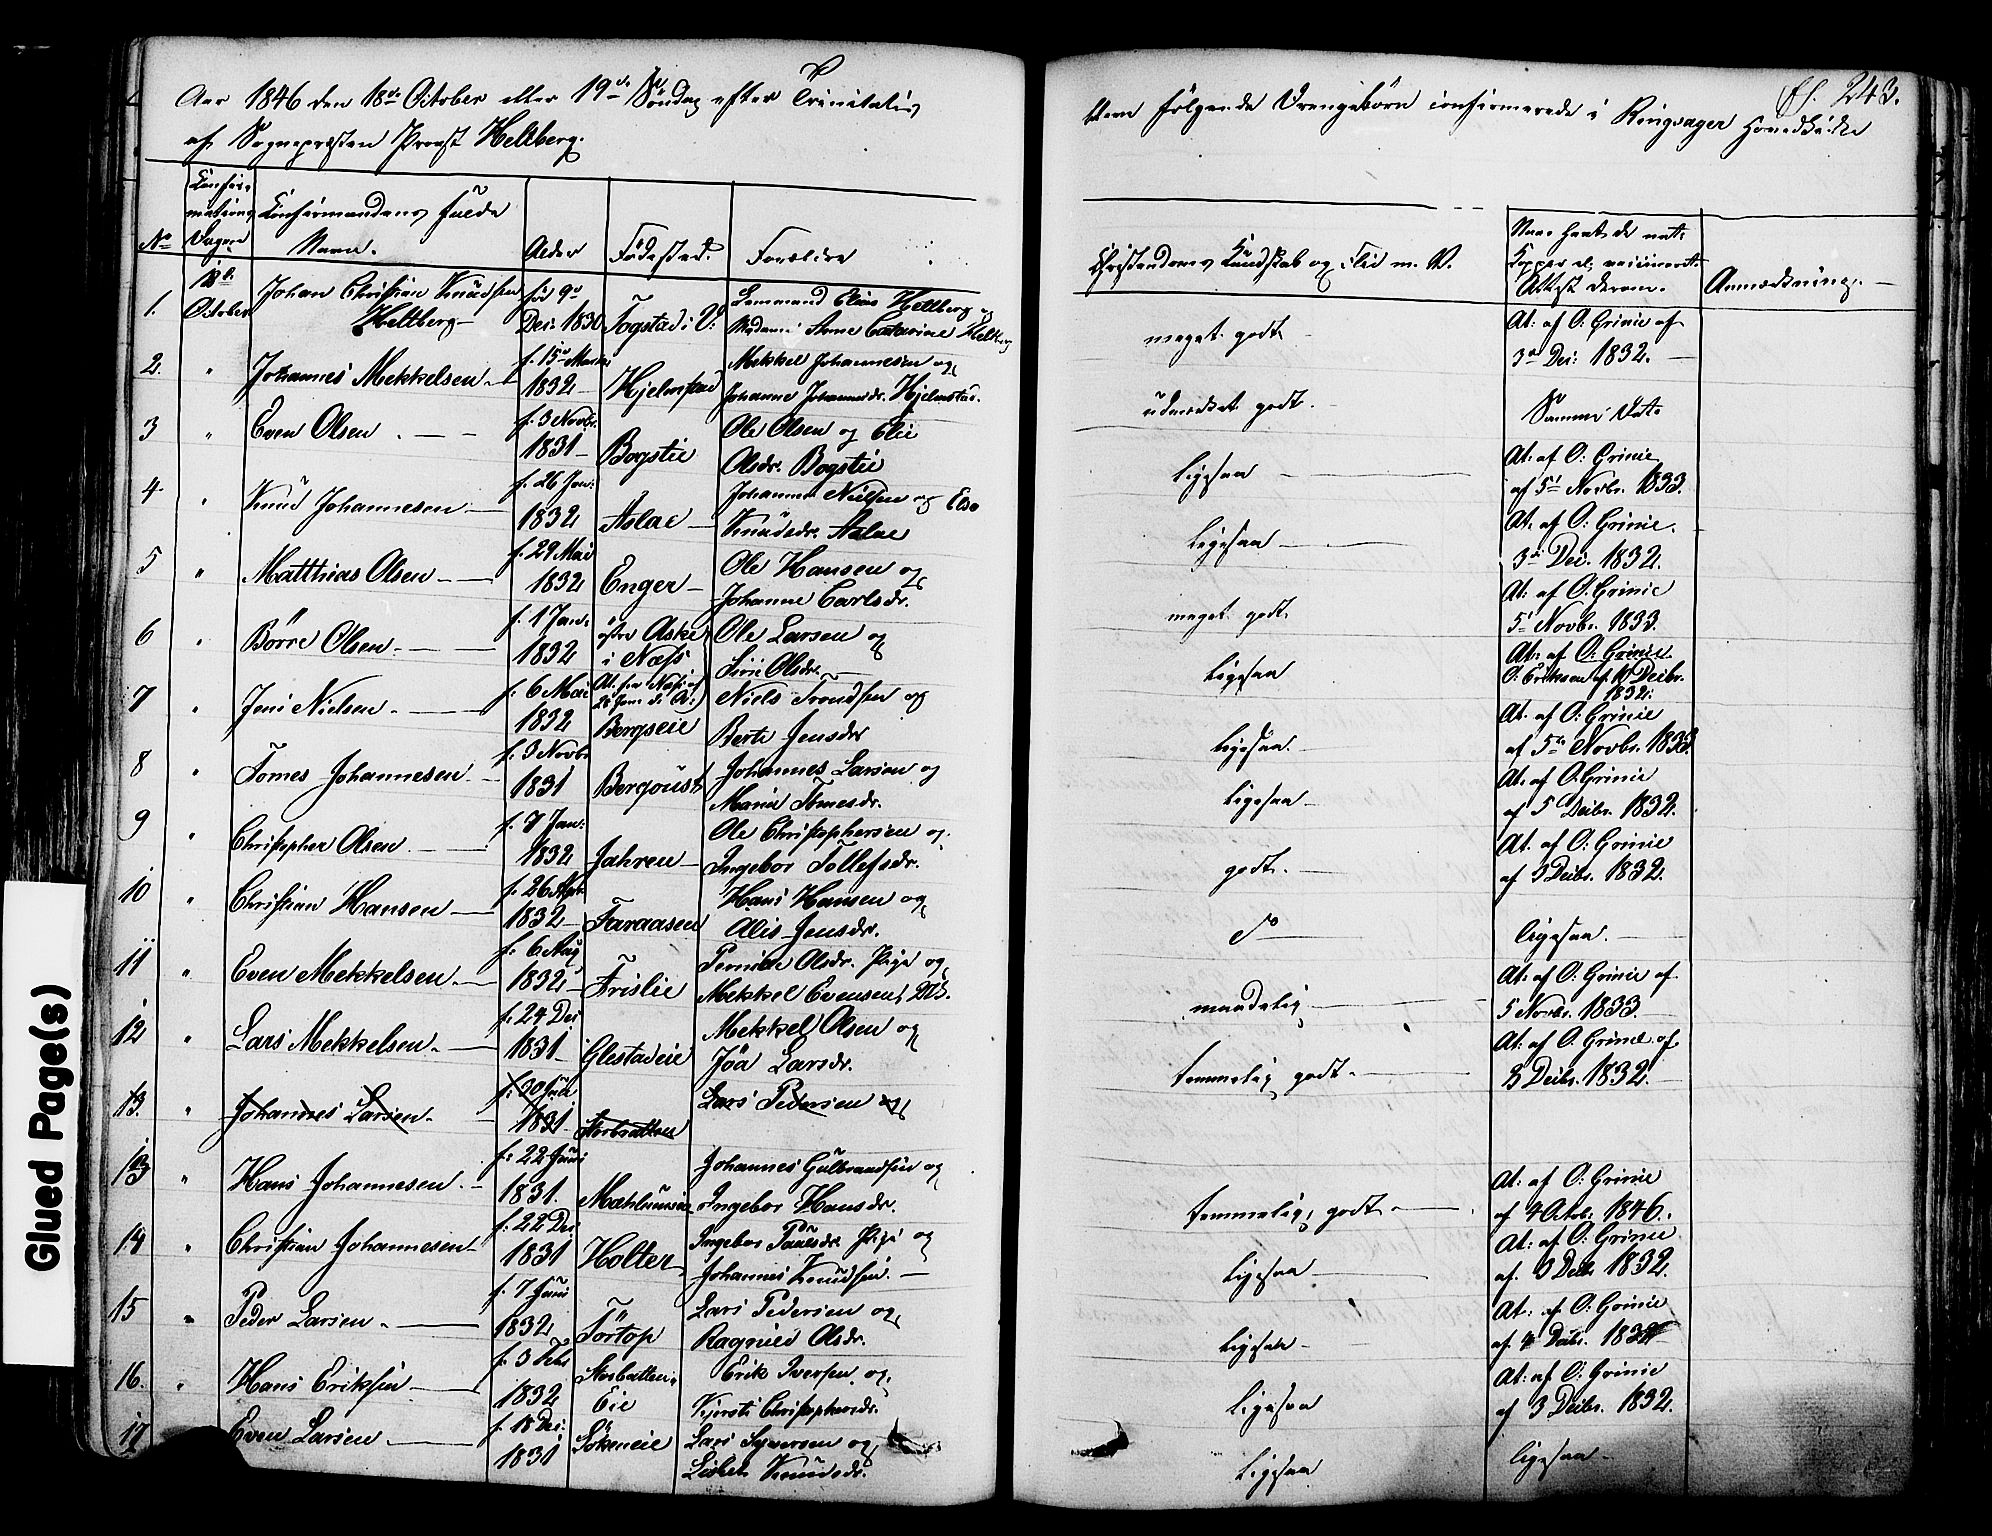 Aar 1846 den 18de October eller 19de Søndag efter Trinitatis
af Sognepræsten Provst Heltberg.
ere følgende Drengebørn confirmerede i Ringsager Hovedkirke
fl. 243.
No
Confir-
mations
Dagen
Confirmandens fulde
Navn.
Alder
Fødested.
Forældre
Christendoms Kundskab og Flid m. V.
Naar havt de nat.
Kopper el. vaccineret.
Attest derom.
Anmærkning.
1.
18de
October
Johan Christian Knudsen
Heltberg
fød 9de
Dec: 1830
Togstad i V:
Lensmand Elias Heltberg og
Madame Anne Catarine Heltberg
meget godt
At: af O: Grinie af
3de Dec: 1832.
2.
"
Johannes Mekkelsen
f. 15de Marts
1832
Hjelmstad
Mekkel Johannesen og
Johanne Johannesdr. Hjelmstad.
udmærket godt.
Samme Dat.
3
"
Even Olsen
f. 3 Novbr.
1831
Bogstie
Ole Olsen og Elie
Olsdr. Bogstie
ligesaa
At: af O: Grinie
af 5te Novbr. 1833.
4
"
Knud Johannesen
f. 26 Jan:
1832
Aslae
Johannes Nielsen og Else
Knudsdr. Aslae
ligesaa
At. af O: Grinie.
3de Dec. 1832.
5
"
Matthias Olsen
f. 29 Mai
1832
Enger
Ole Hansen og
Johanne Carlsdr.
meget godt
At: af O: Grinie
5te Novbr. 1833.
6
"
Børre Olsen
f. 1 Jan.
1832
østre Aske
i Næss
At. fra Næss af
28 Jun: d: A:)
Ole Larsen og
Siri Olsdr.
ligesaa
At: af O: Grinie
O. Eriksen af 10 Decbr.
1832.
7
"
Jens Nielsen
f. 6 Mai
1832
Bergseie
Niels Trondsen og
Berte Jensdr
ligesaa.
At. af O: Grinie
af 5te Novbr. 1833.
8
"
Tomes Johannesen
f. 3 Novbr
1831
Bergoust
Johannes Larsen og
Marie Tomesdr.
ligesaa
At: af O: Grinie
af 5 Decbr. 1832.
9
"
Christopher Olsen
f. 7 Jan:
1832
Jahren
Ole Christophersen og
Ingebor Tollefsdr.
godt.
At. af O: Grinie
af 3 Decbr. 1832.
10
"
Christian Hansen
f. 26 Apr.
1832
Faraasen
Hans Hansen og
Alis Jensdr.
do
ligesaa.
11
"
Even Mekkelsen
f. 6 Aug
1832
Frislie
Pernille Olsdr. Pige og
Mekkel Evensen,
maadelig
At: af O: Grinie af
5 Novbr. 1833
12
"
Lars Mekkelsen
f. 24 Dec
1831
Glestadeie
Mekkel Olsen og
Joa Larsdr.
temmelig godt.
At: af O. Grinie af
3 Decbr. 1832.
13.
"
Johannes Larsen
1831
Storbratten
Lars Pedersen og
13
"
Hans Johannesen
f: 22 Juni
1831.
Mæhlumseie
Johannes Gulbrandsen og
Ingebor Hansdr.
temmelig godt
At: af O: Grinie
af 4 Octob. 1846.
14
"
Christian Johannesen
f. 22 Dec.
1831
Holter
Ingebor Paulsdr. Pige og
Johannes Knudsen.
ligesaa
At: af O: Grinie
af. 3 Decb. 1832.
15
"
Peder Larsen
f. 7 Juni
1832
Törtop
Lars Pedersen og
Ragnild Olsdr.
ligesaa
At: af O: Grinie
af 4 Decbr. 1832
16.
"
Hans Eriksen
f. 3 Febr
1832
Storbratten
Eie
Erik Iversen og
Kjersti Christophersdr.
ligesaa
At: af O: Grinie
af 3 Decbr. 1832.
17
Even Larsen
f. 18 Dec.
1831
Lökeneie
Lars Syversen og
Lisbet Knudsdr.
ligesaa
ligesaa
Glued Page(s)